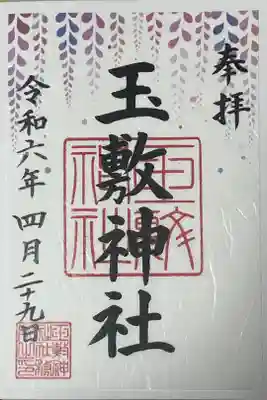 奉拝
玉敷神社
令和六年 四月二十九日